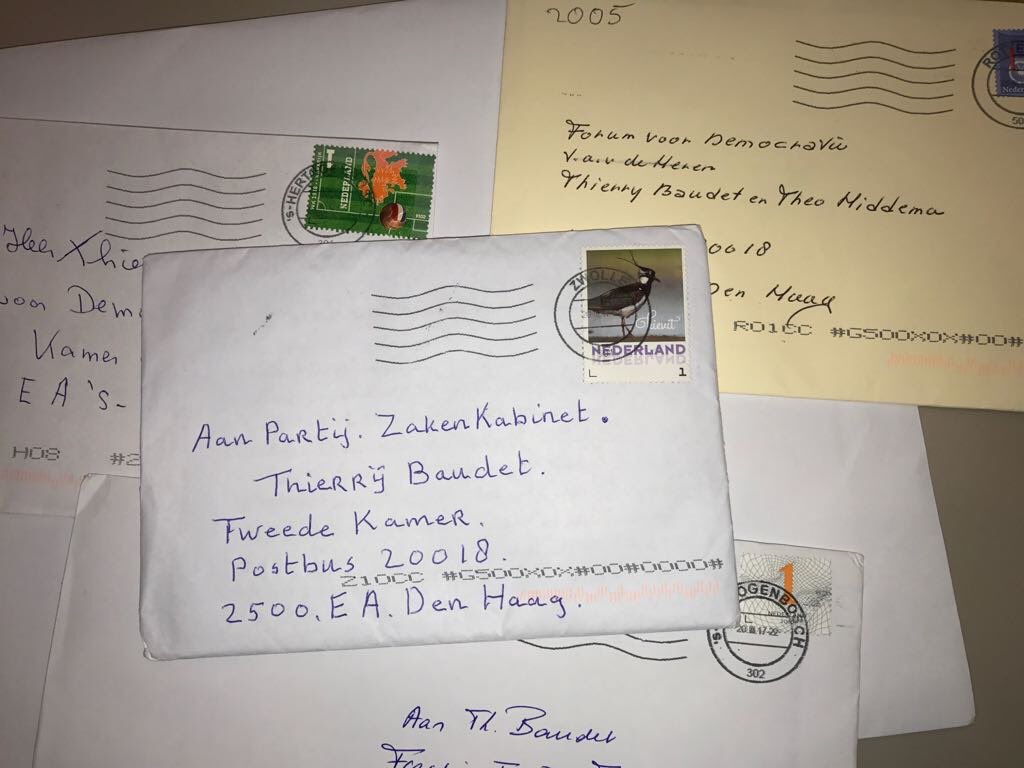 2005
Forum voor Democratie
t.a.v de Heren
Thierry Baudet en Theo Hiddema
0018
Den Haag
R01CC #G500X0X#00#
's-HERTO
NEDERLAND
Heer Thie
voor Dem
Kamer
E A 's-
H08 #2
ZWOLLE
Kievit
NEDERLAND
1
Aan Partij. ZakenKabinet.
Thierrÿ Baudet.
Tweede Kamer.
Postbus 20018.
Z10CC #G500X0X#00#0000#
2500. E A. Den Haag.
1
's- OGENBOSCH
20.III.17-22
302
Aan Th. Baudet